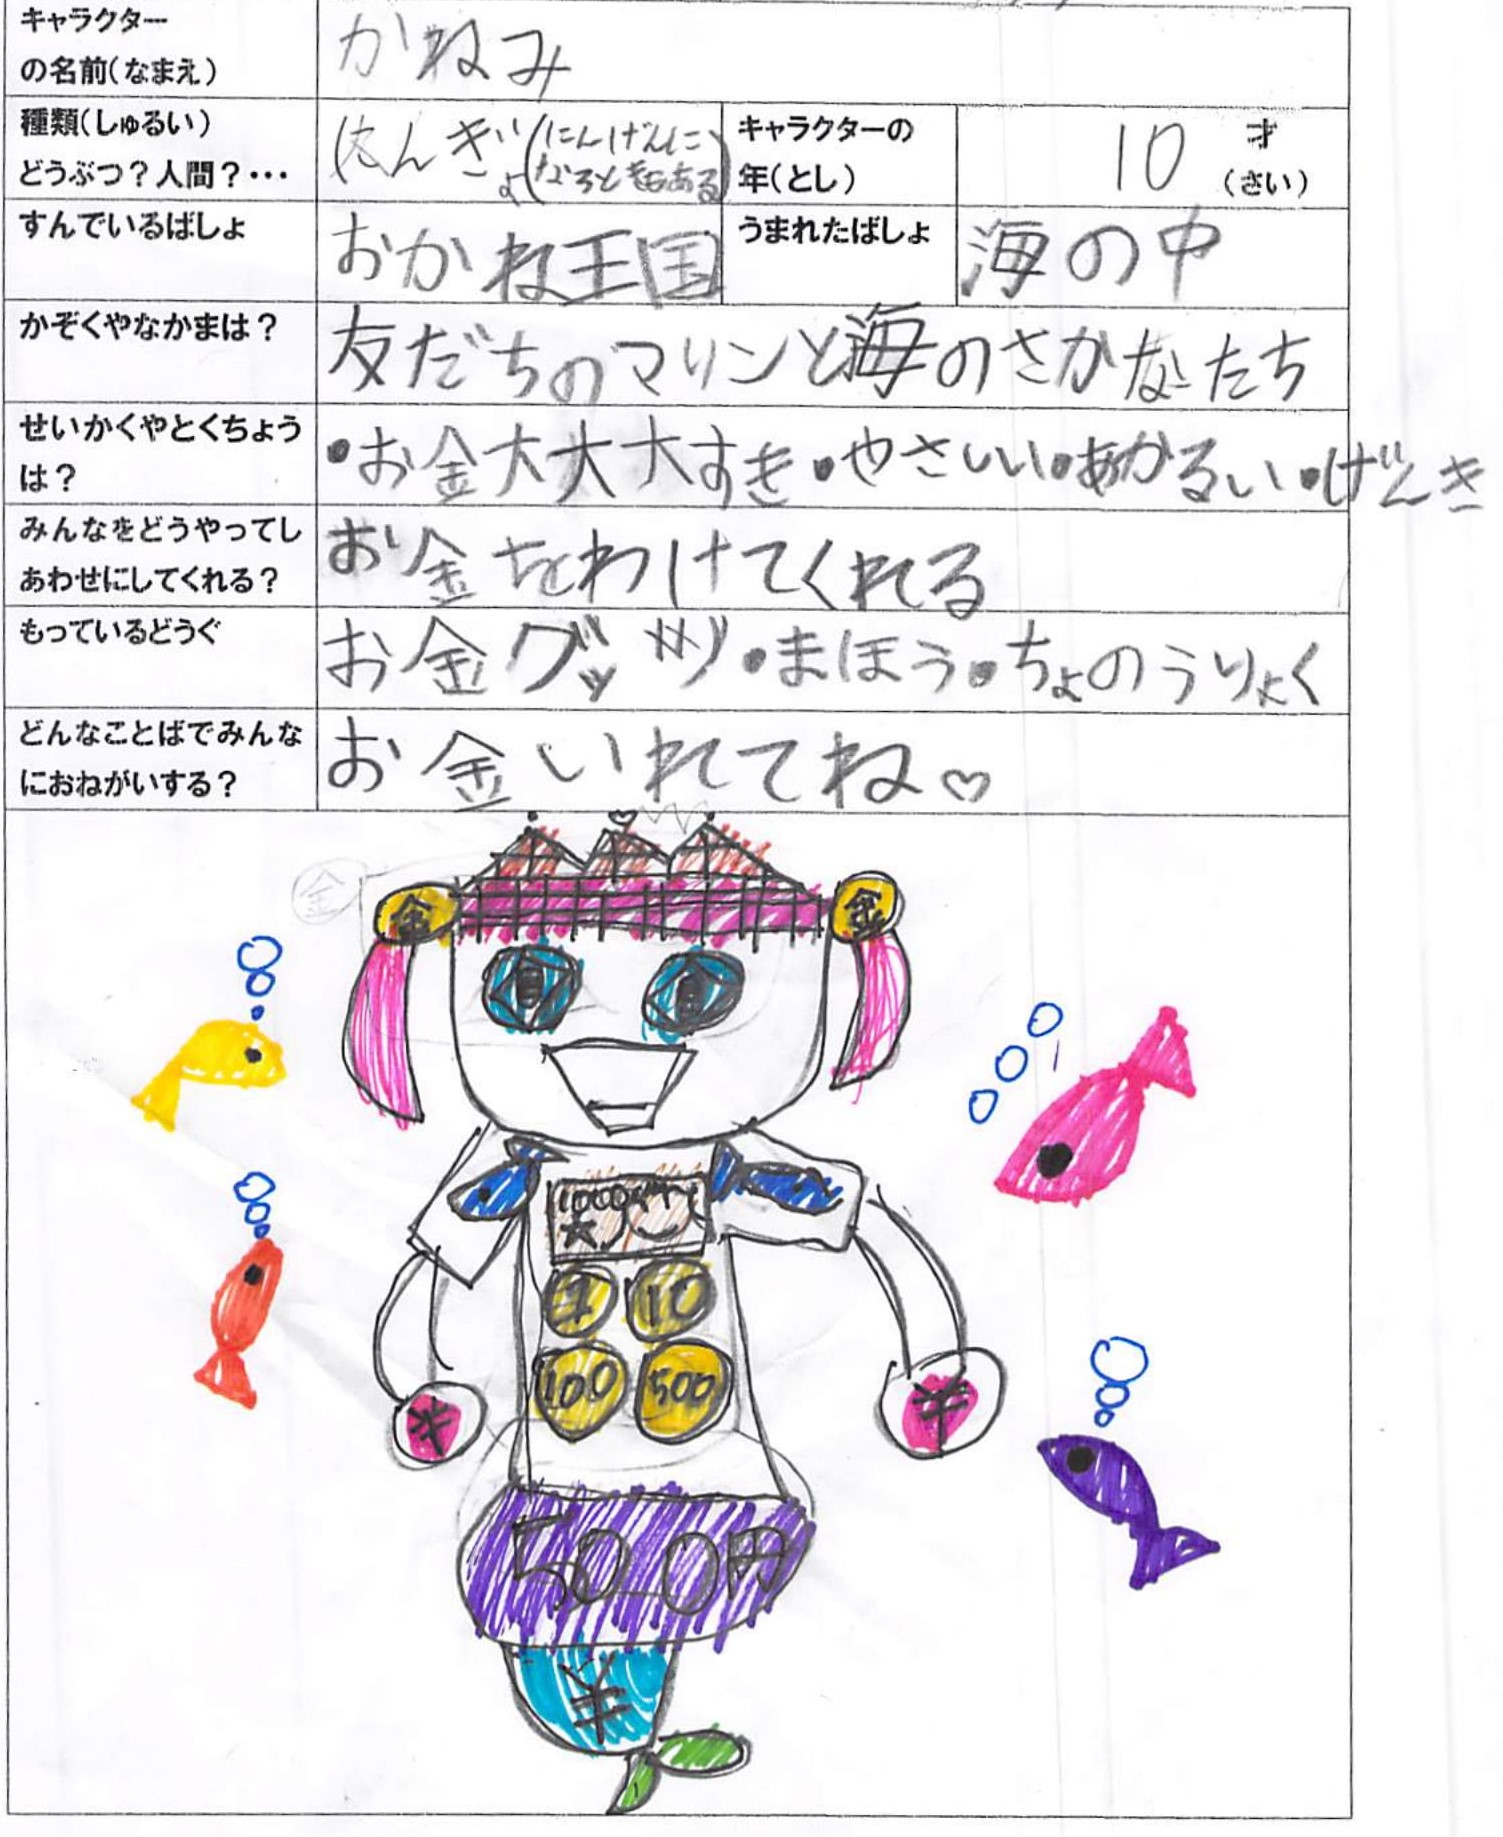 キャラクター
の名前(なまえ)
かねみ
種類(しゅるい)
どうぶつ?人間?・・・
にんぎょ(にんげんに
なるときもある)
キャラクターの
年(とし)
10 才
(さい)
すんでいるばしょ
おかね王国
うまれたばしょ
海の中
かぞくやなかまは?
友だちのマリンと海のさかなたち
せいかくやとくちょう
は?
•お金大大大すき•やさいい•あかるい•げんき
みんなをどうやってし
あわせにしてくれる?
お金をわけてくれる
もっているどうぐ
お金グッツ•まほう•ちょのうりょく
どんなことばでみんな
におねがいする?
お金いれてね♡
金
金 金
1 10
100 500
¥ ¥
500円
¥